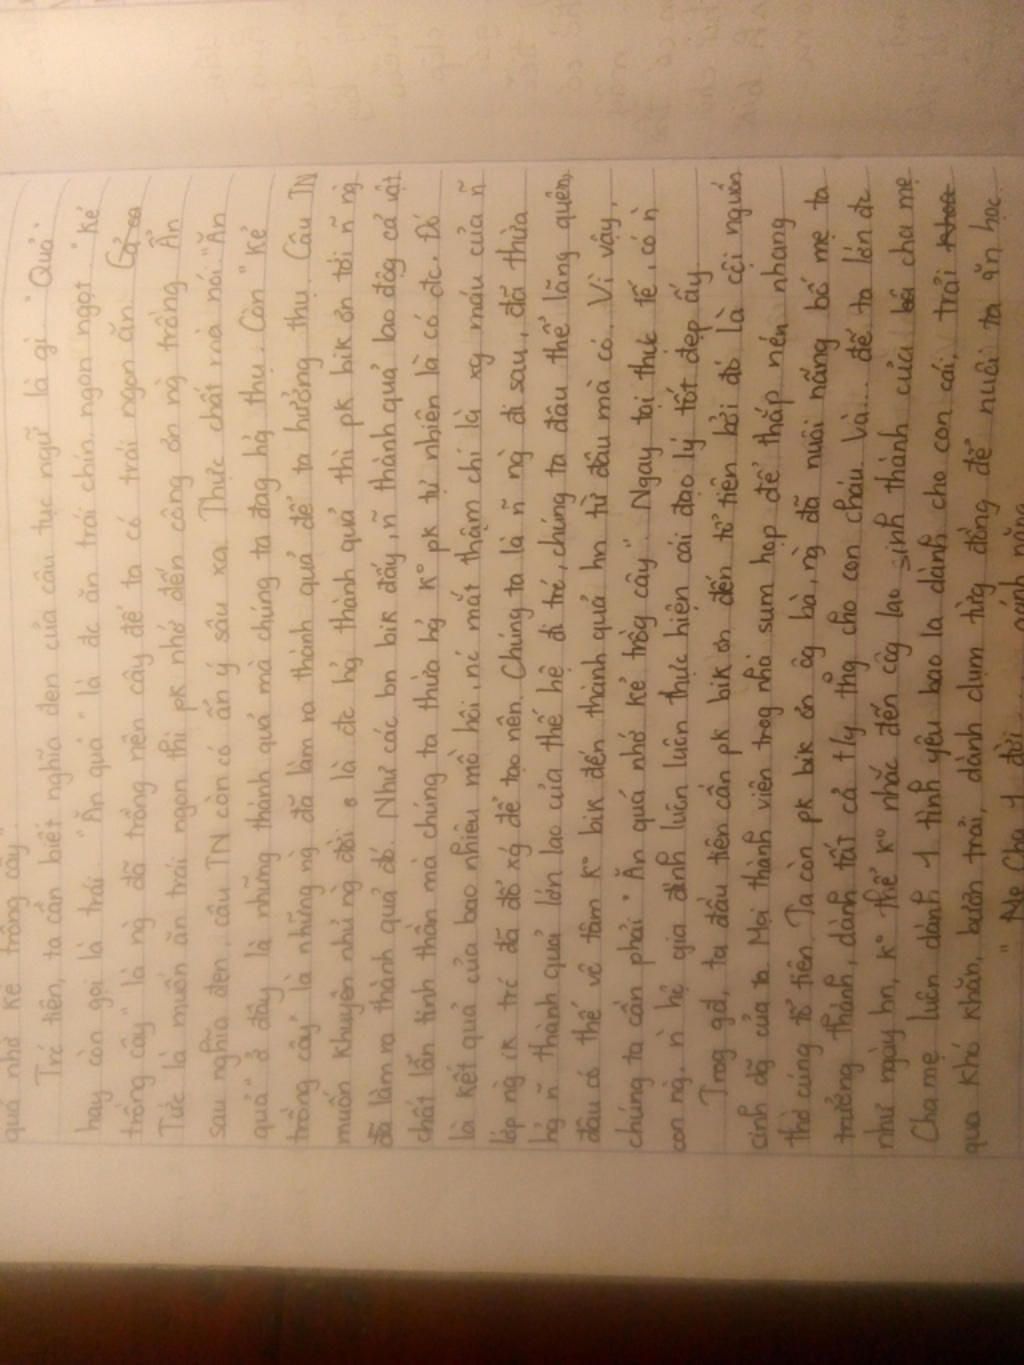 quả nhớ kẻ trồng cây"
Trc tiên, ta cần biết nghĩa đen của câu tục ngữ là gì. "Quả"
hay còn gọi là trái. "Ăn quả" là đc ăn trái chín ngon ngọt. "kẻ
trồng cây" là ng đã trồng nên cây để ta có trái ngon ăn.
Tức là muốn ăn trái ngon thì pk nhớ đến công ơn ng trồng. Ẩn
sau nghĩa đen, câu TN còn có ẩn ý sâu xa. Thực chất mà nói "Ăn
quả" ở đây là những thành quả mà chúng ta đag hg thụ. Còn "kẻ
trồng cây" là những ng đã làm ra thành quả để ta hưởng thụ. Câu TN
muốn khuyên nhủ ng đời là đc hg thành quả thì pk bik ơn tới ñ ng
đã làm ra thành quả đó. Như các bn bik đấy, ñ thành quả lao độg cả vật
chất lẫn tinh thần mà chúng ta thừa hg k° pk tự nhiên là có đc. Đó
là kết quả của bao nhiêu mồ hôi, nc mắt thậm chí là xg máu của ñ
lớp ng ik trc đã đổ xg để tạo nên. Chúng ta là ñ ng đi sau, đã thừa
hg ñ thành quả lớn lao của thế hệ đi trc, chúng ta đâu thể lãng quên,
đâu có thể vô tâm k° bik đến thành quả hn từ đâu mà có. Vì vậy,
chúng ta cần phải "Ăn quả nhớ kẻ trồg cây". Ngay tại thực tế, có ñ
con ng, ñ hộ gia đình luôn luôn thực hiện cái đạo lý tốt đẹp ấy.
Trog gđ, ta đầu tiên cần pk bik ơn đến tổ tiên bởi đó là cội nguồn
của m. Mọi thành viên trog nhà sum họp để thắp nén nhang
thờ cúng tổ tiên. Ta còn pk bik ơn ôg bà, ng đã nuôi nấng bố mẹ ta
trưởng thành, dành tất cả t/y thg cho con cháu và... để ta lớn đc
như ngày hn, k° thể k° nhắc đến côg lao sinh thành của cha mẹ.
Cha mẹ luôn dành 1 tình yêu bao la dành cho con cái, trải
qua khó khăn, bươn trải, dành dụm từg đồng để nuôi ta ăn học.
"Mẹ Cha 1 đời gánh nặng